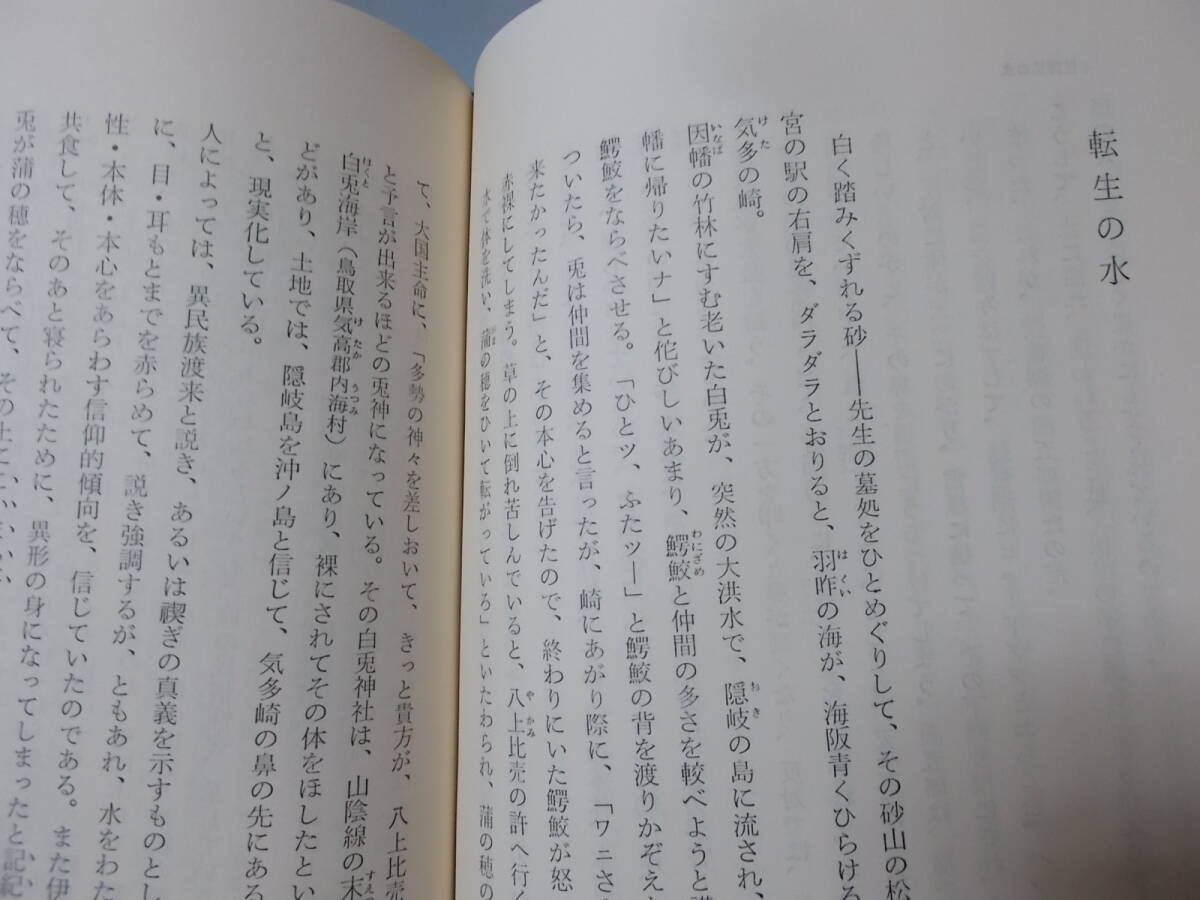 転生の水
白く踏みくずれる砂——先生の墓処をひとめぐりして、その砂山の松
宮の駅の右肩を、ダラダラとおりると、羽昨の海が、海阪青くひらける
気多の崎。
因幡の竹林にすむ老いた白兎が、突然の大洪水で、隠岐の島に流され、
幡に帰りたいナ」と侘びしいあまり、鰐鮫と仲間の多さを較べようと
鰐鮫をならべさせる。「ひとツ、ふたツ—」と鰐鮫の背を渡りかぞえ
ついたら、兎は仲間を集めると言ったが、崎にあがり際に、「ワニさ
来たかったんだ」と、その本心を告げたので、終わりにいた鰐鮫が怒
赤裸にしてしまう。草の上に倒れ苦しんでいると、八上比売の許へ行く
水で体を洗い、蒲の穂をひいて転がっていろ」といたわられ、蒲の穂の
て、大国主命に、「多勢の神々を差しおいて、きっと貴方が、八上比売
と予言が出来るほどの兎神になっている。その白兎神社は、山陰線の末
白兎海岸（鳥取県気高郡内海村）にあり、裸にされてその体をほしたとい
どがあり、土地では、隠岐島を沖ノ島と信じて、気多崎の鼻の先にある
と、現実化している。
人によっては、異民族渡来と説き、あるいは禊ぎの真義を示すものとし
に、目・耳もとまでを赤らめて、説き強調するが、ともあれ、水をわた
性・本体・本心をあらわす信仰的傾向を、信じていたのである。また伊
共食して、そのあと寝られたために、異形の身になってしまったと記紀
兎が蒲の穂をならべて、その上に